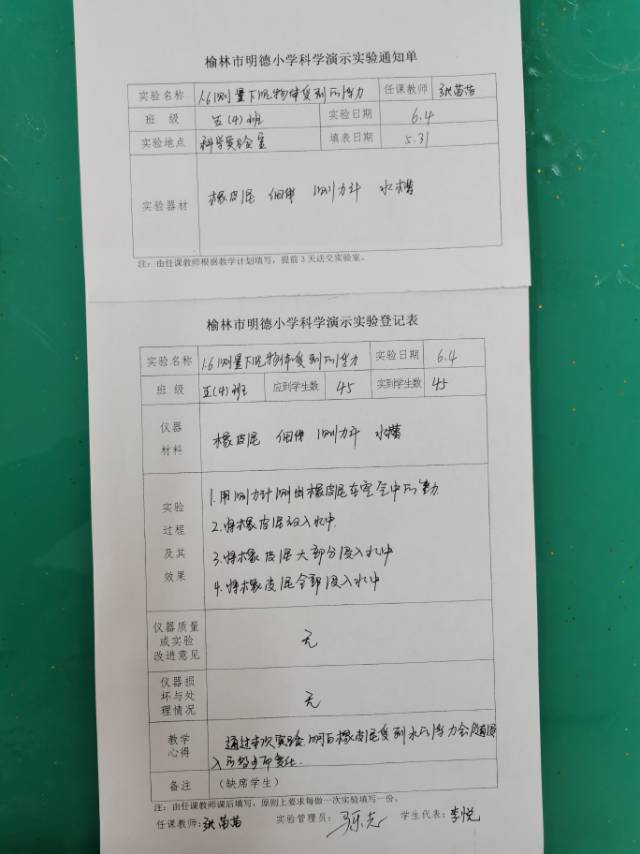 榆林市明德小学科学演示实验通知单
实验名称 1.6测量下沉物体受到的浮力 任课教师 张苗苗
班 级 五(4)班 实验日期 6.4
实验地点 科学实验室 填表日期 5.31
实验器材 橡皮泥 细绳 测力计 水槽
注：由任课教师根据教学计划填写，提前3天送交实验室。
榆林市明德小学科学演示实验登记表
实验名称 1.6测量下沉物体受到的浮力 实验日期 6.4
班 级 五(4)班 应到学生数 45 实到学生数 45
仪器
材料
橡皮泥 细绳 测力计 水槽
实验
过程
及其
效果
1.用测力计测出橡皮泥在空气中的重力
2.将橡皮泥 入水中.
3.将橡皮泥大部分浸入水中
4.将橡皮泥全部浸入水中
仪器质量
或实验
改进意见
无
仪器损
坏与处
理情况
无
教学
心得
通过本次实验,明白橡皮泥受到水的浮力会随着浸
入的 不同变化.
备注 （缺席学生）
注：由任课教师课后填写，原则上要求每做一次实验填写一份。
任课教师：张苗苗 实验管理员： 学生代表：李悦